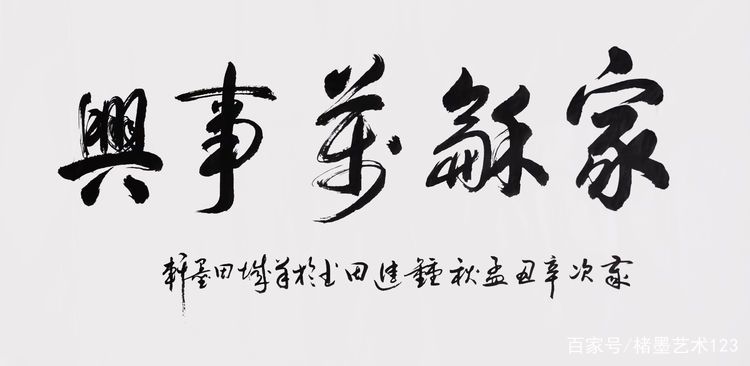 家龢萬事興
歲次辛丑孟秋鍾田书於羊城田墨軒
百家号/楮墨艺术123